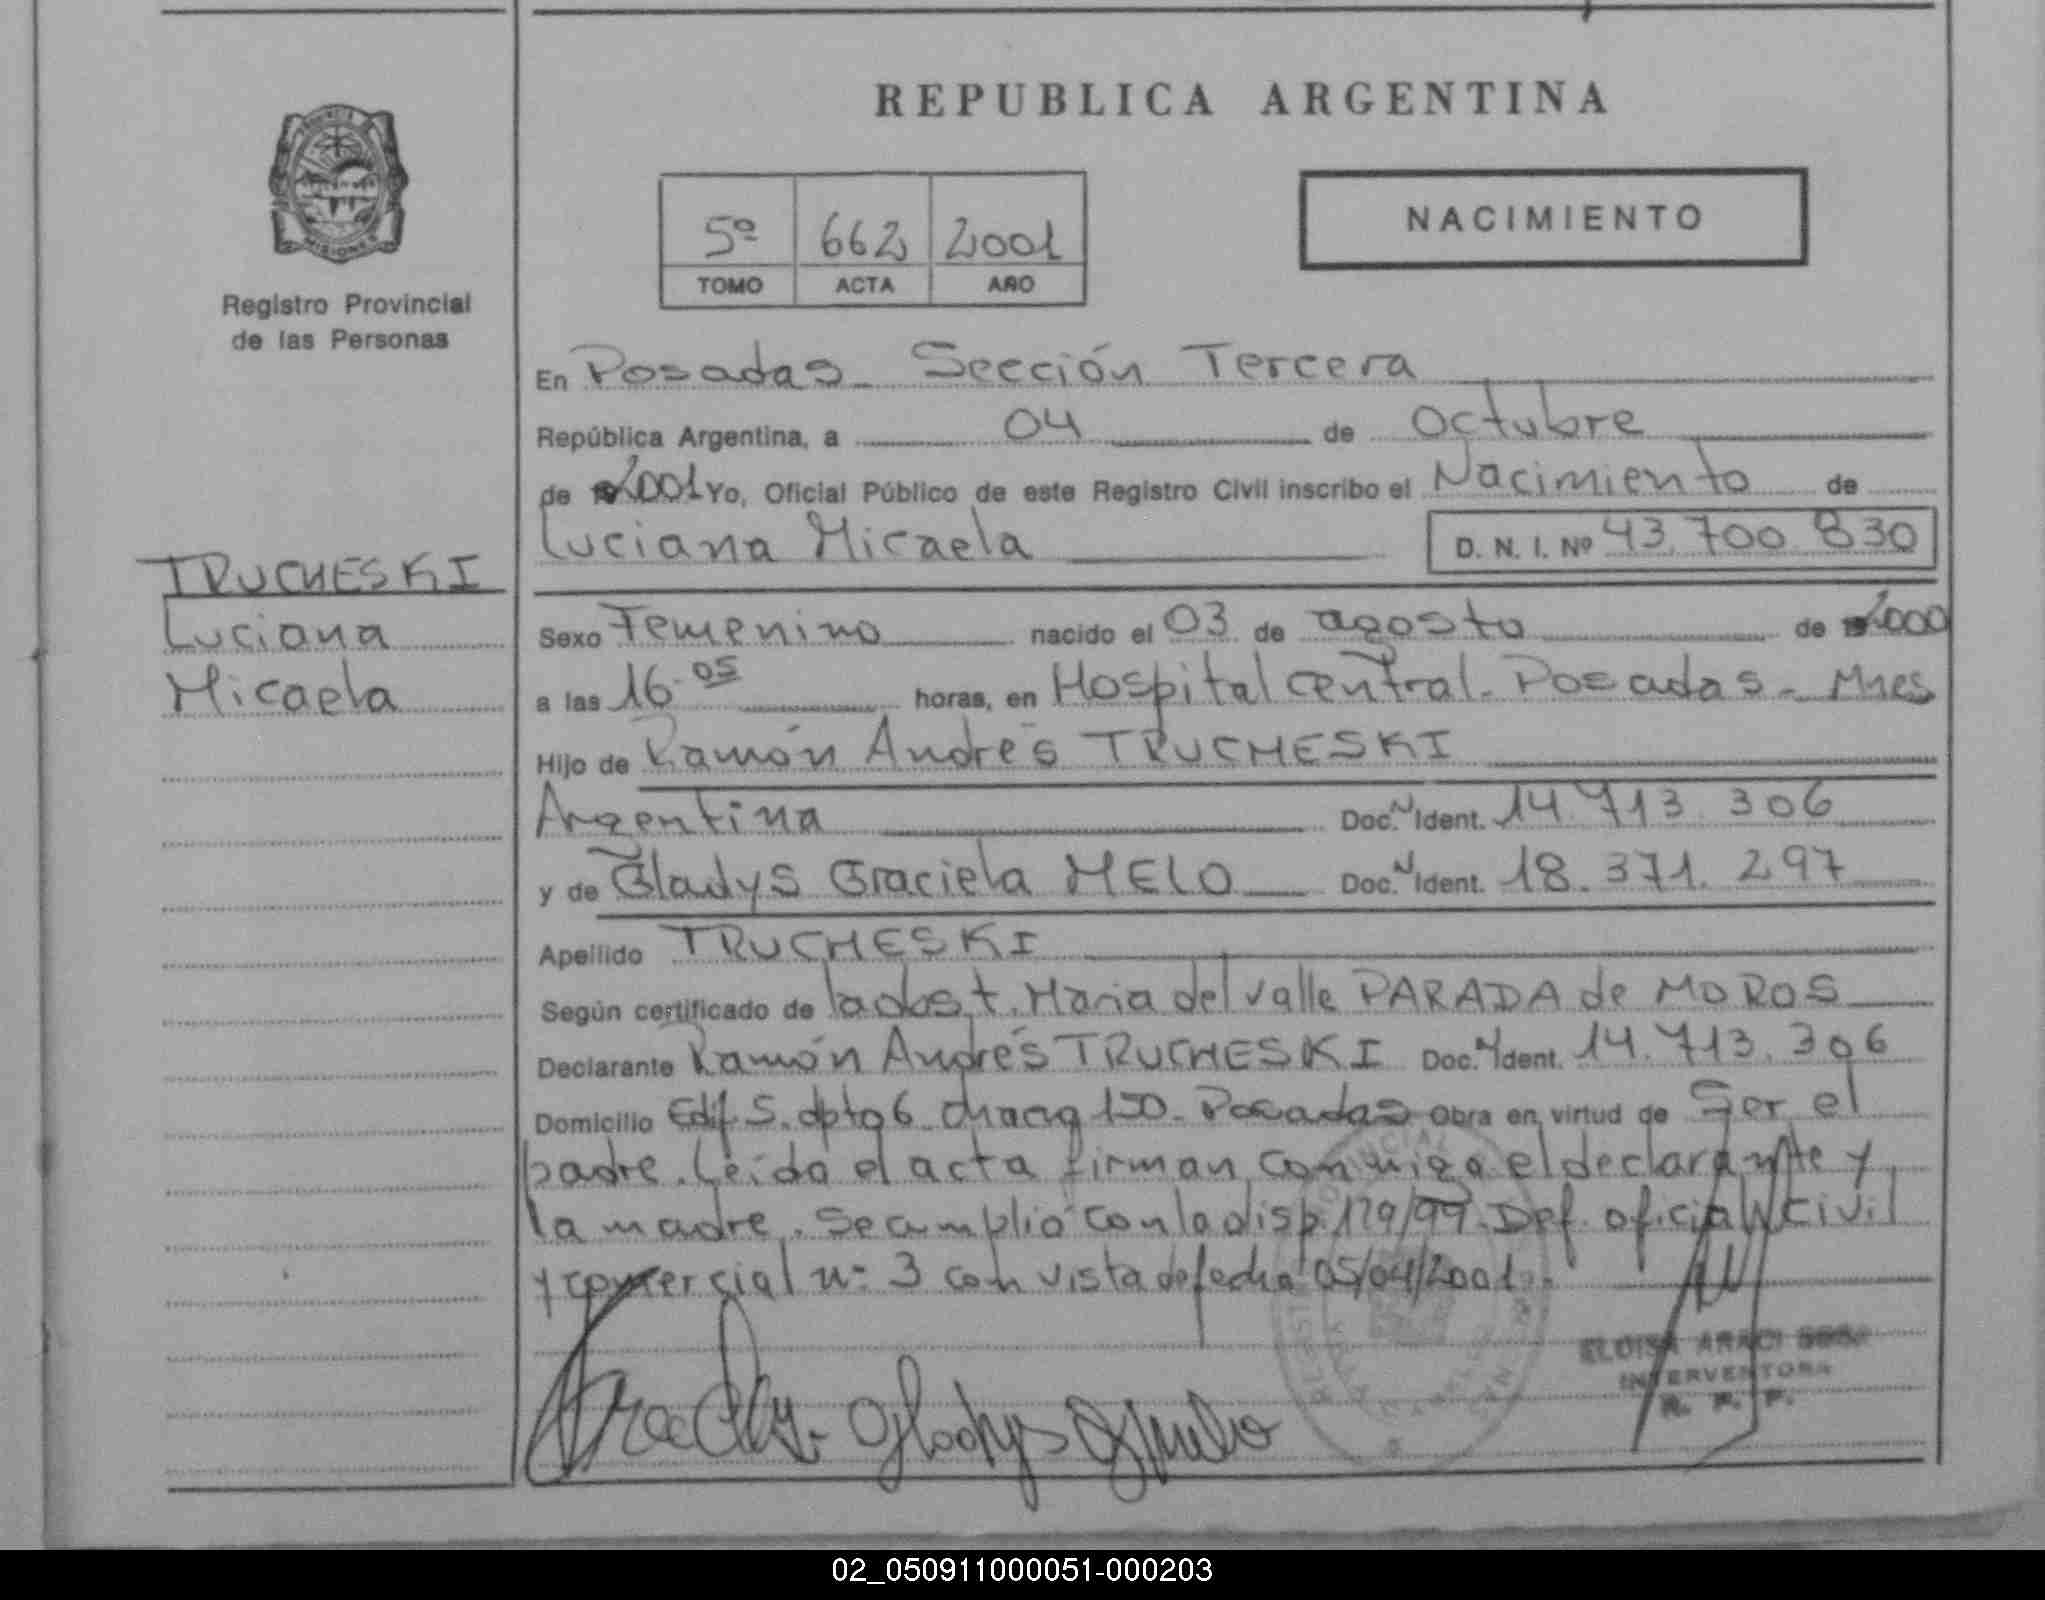 REPUBLICA ARGENTINA
PROVINCIA
MISIONES
Registro Provincial
de las Personas
5º 662 2001
TOMO ACTA AÑO
NACIMIENTO
En Posadas - Sección Tercera
República Argentina, a 04 de Octubre
de 2001 Yo, Oficial Público de este Registro Civil inscribo el Nacimiento de
Luciana Micaela D. N. I. Nº 43.700.830
TRUCHESKI
Luciana
Micaela
Sexo Femenino nacido el 03 de agosto de 2000
a las 16.05 horas, en Hospital Central - Posadas - Mnes
Hijo de Ramón Andrés TRUCHESKI
Argentina Doc. N Ident. 14.713.306
y de Gladys Graciela MELO Doc. N Ident. 18.371.297
Apellido TRUCHESKI
Según certificado de la obst. Maria del Valle PARADA de MOROS
Declarante Ramón Andrés TRUCHESKI Doc. N Ident. 14.713.306
Domicilio Edif 5. dpto 6 chacra 150 - Posadas Obra en virtud de Ser el
padre. Leída el acta firman conmigo el declarante y
la madre. Se cumplió con la disp. 179/99. Def. oficial Civil
y comercial nº 3 con vista de fecha 05/04/2001.
ELOISA ARACI SOSA
INTERVENTORA
R. P. P.
02_050911000051-000203